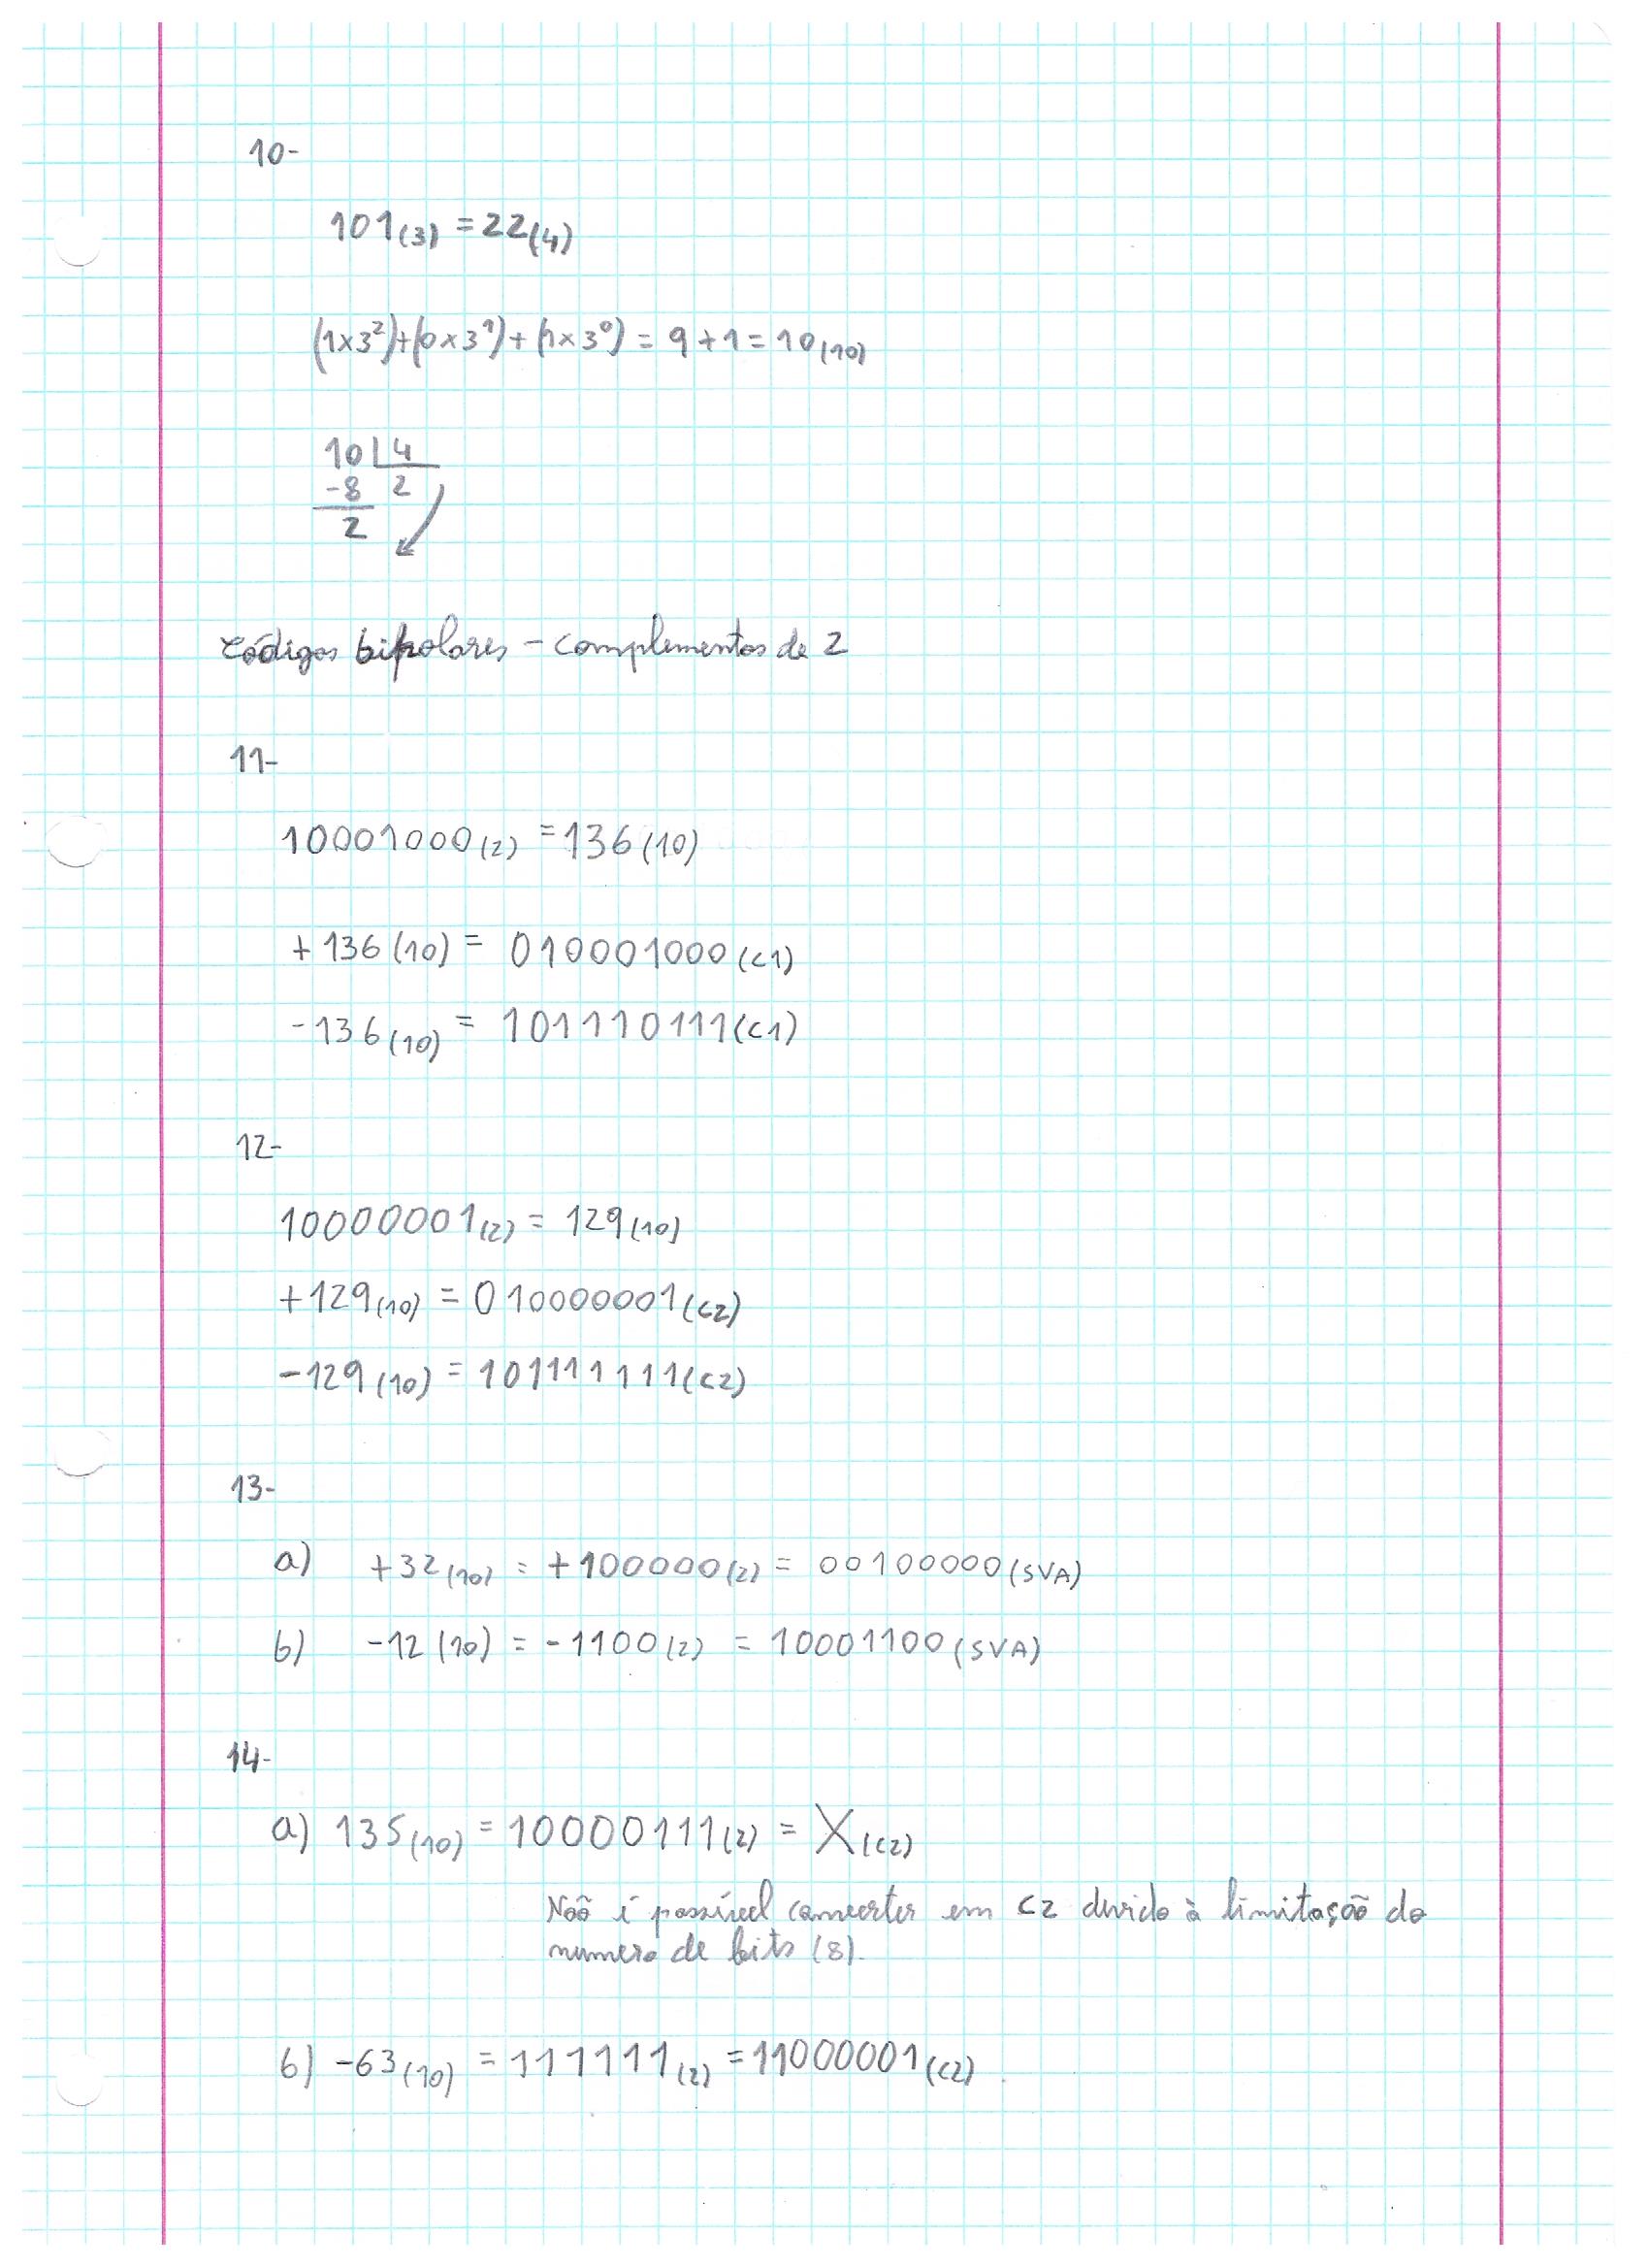 10-
101(3) = 22(4)
(1x3²)+(0x3¹)+(1x3⁰) = 9+1 = 10(10)
10 | 4
-8 2
2
códigos bipolares - complementos de 2
11-
10001000(2) = 136(10)
+136(10) = 010001000(C1)
-136(10) = 101110111(C1)
12-
10000001(2) = 129(10)
+129(10) = 010000001(C2)
-129(10) = 101111111(C2)
13-
a) +32(10) = +100000(2) = 00100000(SVA)
b) -12(10) = -1100(2) = 10001100(SVA)
14-
a) 135(10) = 10000111(2) = X(C2)
Não é possível converter em C2 devido à limitação do
numero de bits (8).
b) -63(10) = 111111(2) = 11000001(C2)